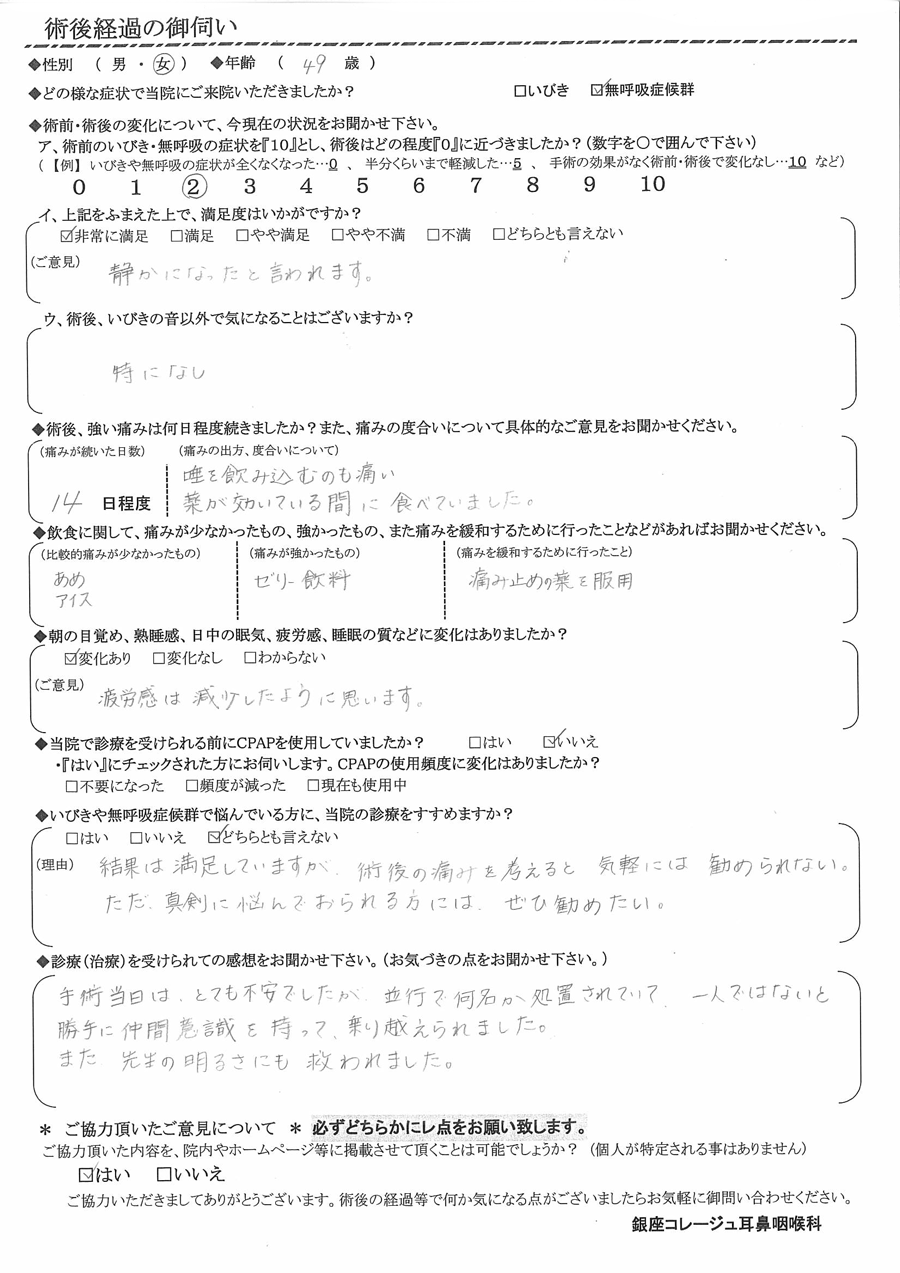 術後経過の御伺い
◆性別 ( 男 ・ 女 ) ◆年齢 ( 49 歳 )
◆どの様な症状で当院にご来院いただきましたか? □いびき ☑無呼吸症候群
◆術前・術後の変化について、今現在の状況をお聞かせ下さい。
ア、術前のいびき・無呼吸の症状を『10』とし、術後はどの程度『0』に近づきましたか?(数字を〇で囲んで下さい)
(【例】 いびきや無呼吸の症状が全くなくなった…0 、 半分くらいまで軽減した…5 、 手術の効果がなく術前・術後で変化なし…10 など)
0 1 ② 3 4 5 6 7 8 9 10
イ、上記をふまえた上で、満足度はいかがですか?
☑非常に満足 □満足 □やや満足 □やや不満 □不満 □どちらとも言えない
(ご意見) 静かになったと言われます。
ウ、術後、いびきの音以外で気になることはございますか?
特になし
◆術後、強い痛みは何日程度続きましたか?また、痛みの度合いについて具体的なご意見をお聞かせください。
(痛みが続いた日数) (痛みの出方、度合いについて)
唾を飲み込むのも痛い
14 日程度 薬が効いている間に食べていました。
◆飲食に関して、痛みが少なかったもの、強かったもの、また痛みを緩和するために行ったことなどがあればお聞かせください。
(比較的痛みが少なかったもの) (痛みが強かったもの) (痛みを緩和するために行ったこと)
あめ ゼリー飲料 痛み止めの薬を服用
アイス
◆朝の目覚め、熟睡感、日中の眠気、疲労感、睡眠の質などに変化はありましたか?
☑変化あり □変化なし □わからない
(ご意見) 疲労感は減少したように思います。
◆当院で診療を受けられる前にCPAPを使用していましたか? □はい ☑いいえ
・『はい』にチェックされた方にお伺いします。CPAPの使用頻度に変化はありましたか?
□不要になった □頻度が減った □現在も使用中
◆いびきや無呼吸症候群で悩んでいる方に、当院の診療をすすめますか?
□はい □いいえ ☑どちらとも言えない
(理由) 結果は満足していますが、術後の痛みを考えると気軽には勧められない。
ただ、真剣に悩んでおられる方には、ぜひ勧めたい。
◆診療(治療)を受けられての感想をお聞かせ下さい。(お気づきの点をお聞かせ下さい。)
手術当日は、とても不安でしたが、並行で何名か処置されていて、一人ではないと
勝手に仲間意識を持って、乗り越えられました。
また、先生の明るさにも救われました。
＊ ご協力頂いたご意見について ＊ 必ずどちらかにレ点をお願い致します。
ご協力頂いた内容を、院内やホームページ等に掲載させて頂くことは可能でしょうか? (個人が特定される事はありません)
☑はい □いいえ
ご協力いただきましてありがとうございます。術後の経過等で何か気になる点がございましたらお気軽に御問い合わせください。
銀座コレージュ耳鼻咽喉科